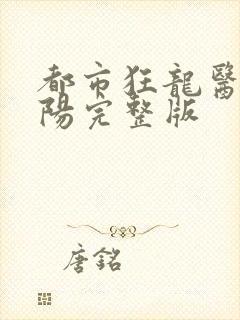 都市狂龍醫
陽完整版
唐銘